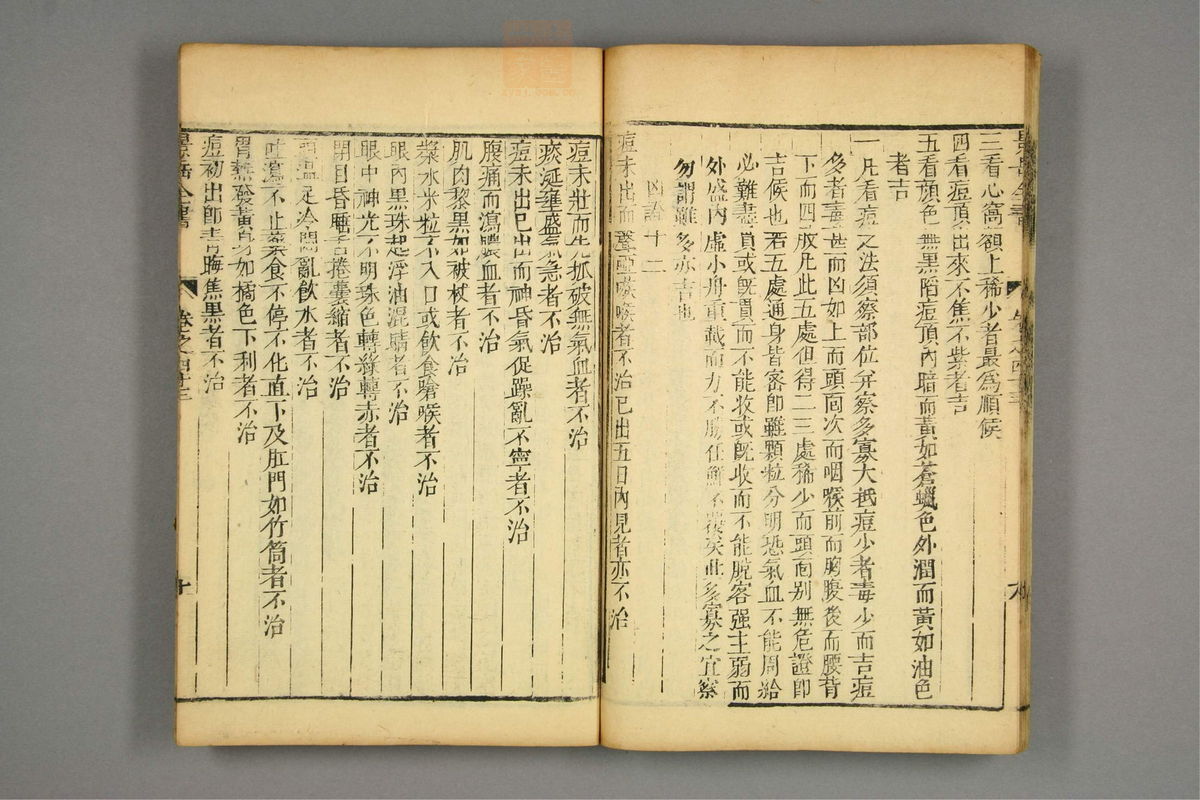 三看心窩額上稀少者最爲順候
四看痘頂出來不焦不紫者吉
五看顔色無黑陷痘頂內暗而黃如蒼蠟色外潤而黃如油色
者吉
一凡看痘之法須察部位并察多寡大抵痘少者毒少而吉痘
多者毒甚而凶如上而頭面次而咽喉前而胸腹後而腰背
下而四肢凡此五處但得二三處稀少而頭面别無危證即
吉候也若五處通身皆密即雖顆粒分明恐氣血不能周給
必難盡貫或旣貫而不能收或旣收而不能脫客强主弱而
外盛內虛小舟重載而力不勝任鮮不覆矣此多寡之宜察
勿謂雖多亦吉也
凶證十二
痘未出而聲啞喉者不治已出五日內見者亦不治
痘未壯而先抓破無氣血者不治
痰涎壅盛氣急者不治
痘未出已出而神昏氣促躁亂不寧者不治
腹痛而瀉膿血者不治
肌肉黎黑如被杖者不治
漿水米粒不入口或飲食嗆喉者不治
眼內黑珠起浮油混睛者不治
眼中神光不明珠色轉綠轉赤者不治
閉目昏睡舌捲囊縮者不治
足冷悶亂飲水者不治
瀉不止藥食不停不化直下及肛門如竹筒者不治
胃熱發黃身如橘色下利者不治
痘初出卽青晦焦黑者不治
景岳全書
卷之四十三
十